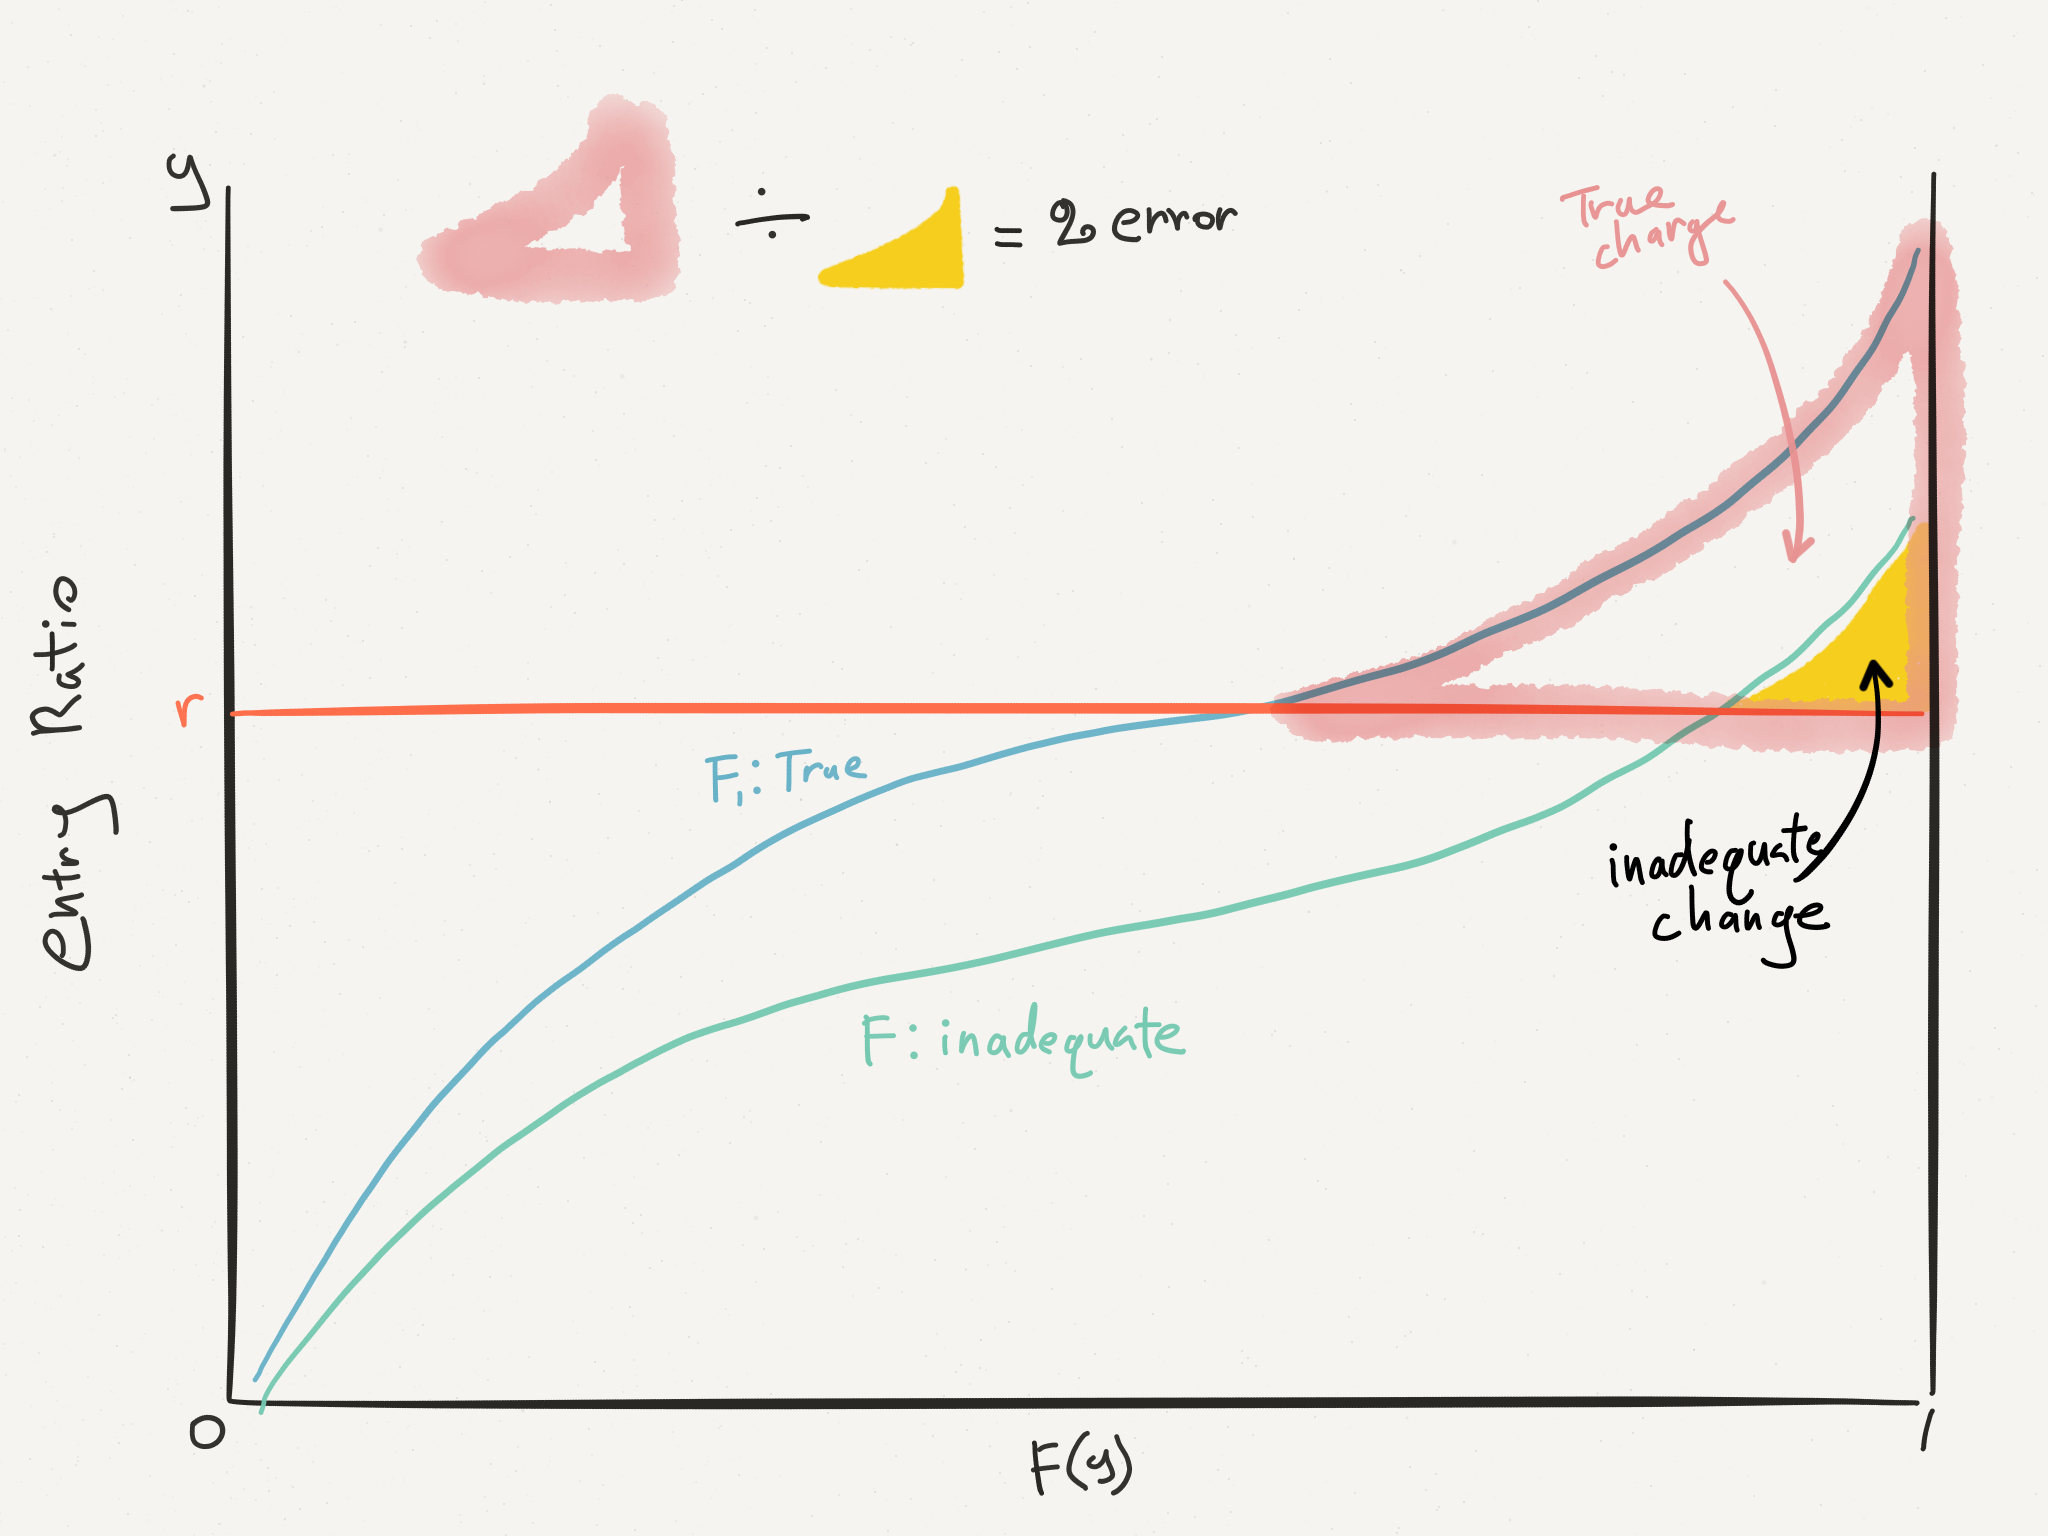 y
÷ = % error
True
charge
Entry Ratio
r
F₁: True
inadequate
change
F: inadequate
0
F(y)
1